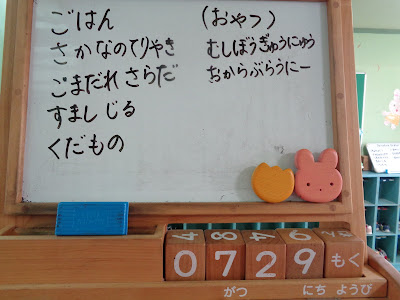 ごはん
さかなのてりやき
ごまだれさらだ
すましじる
くだもの
(おやつ)
むしぼうぎゅうにゅう
おからぶらうにー
0729もく
がつ にち ようび